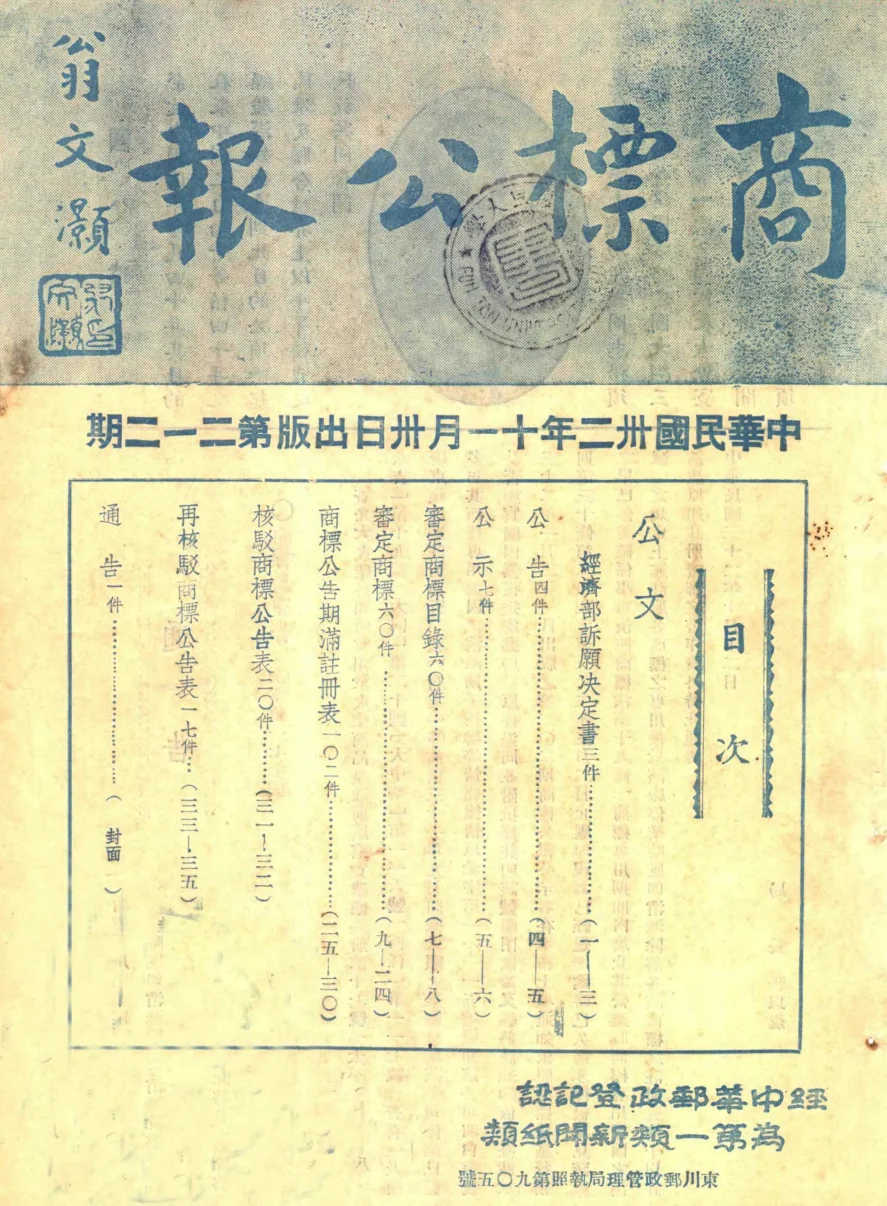 商標公報
翁文灝
中華民國卅二年十一月卅日出版第二一二期
目次
公文
經濟部訴願決定書三件………(一—三)
公告四件………(四—五)
公示七件………(五—六)
審定商標目錄六〇件………(七—八)
審定商標六〇件………(九—二四)
商標公告期滿註冊表一〇二件………(二五—三〇)
核駁商標公告表二〇件………(三一—三二)
再核駁商標公告表一七件…(三三—三五)
通告一件………(封面)
經中華郵政登記認
為第一類新聞紙類
東川郵政管理局執照第九〇五號